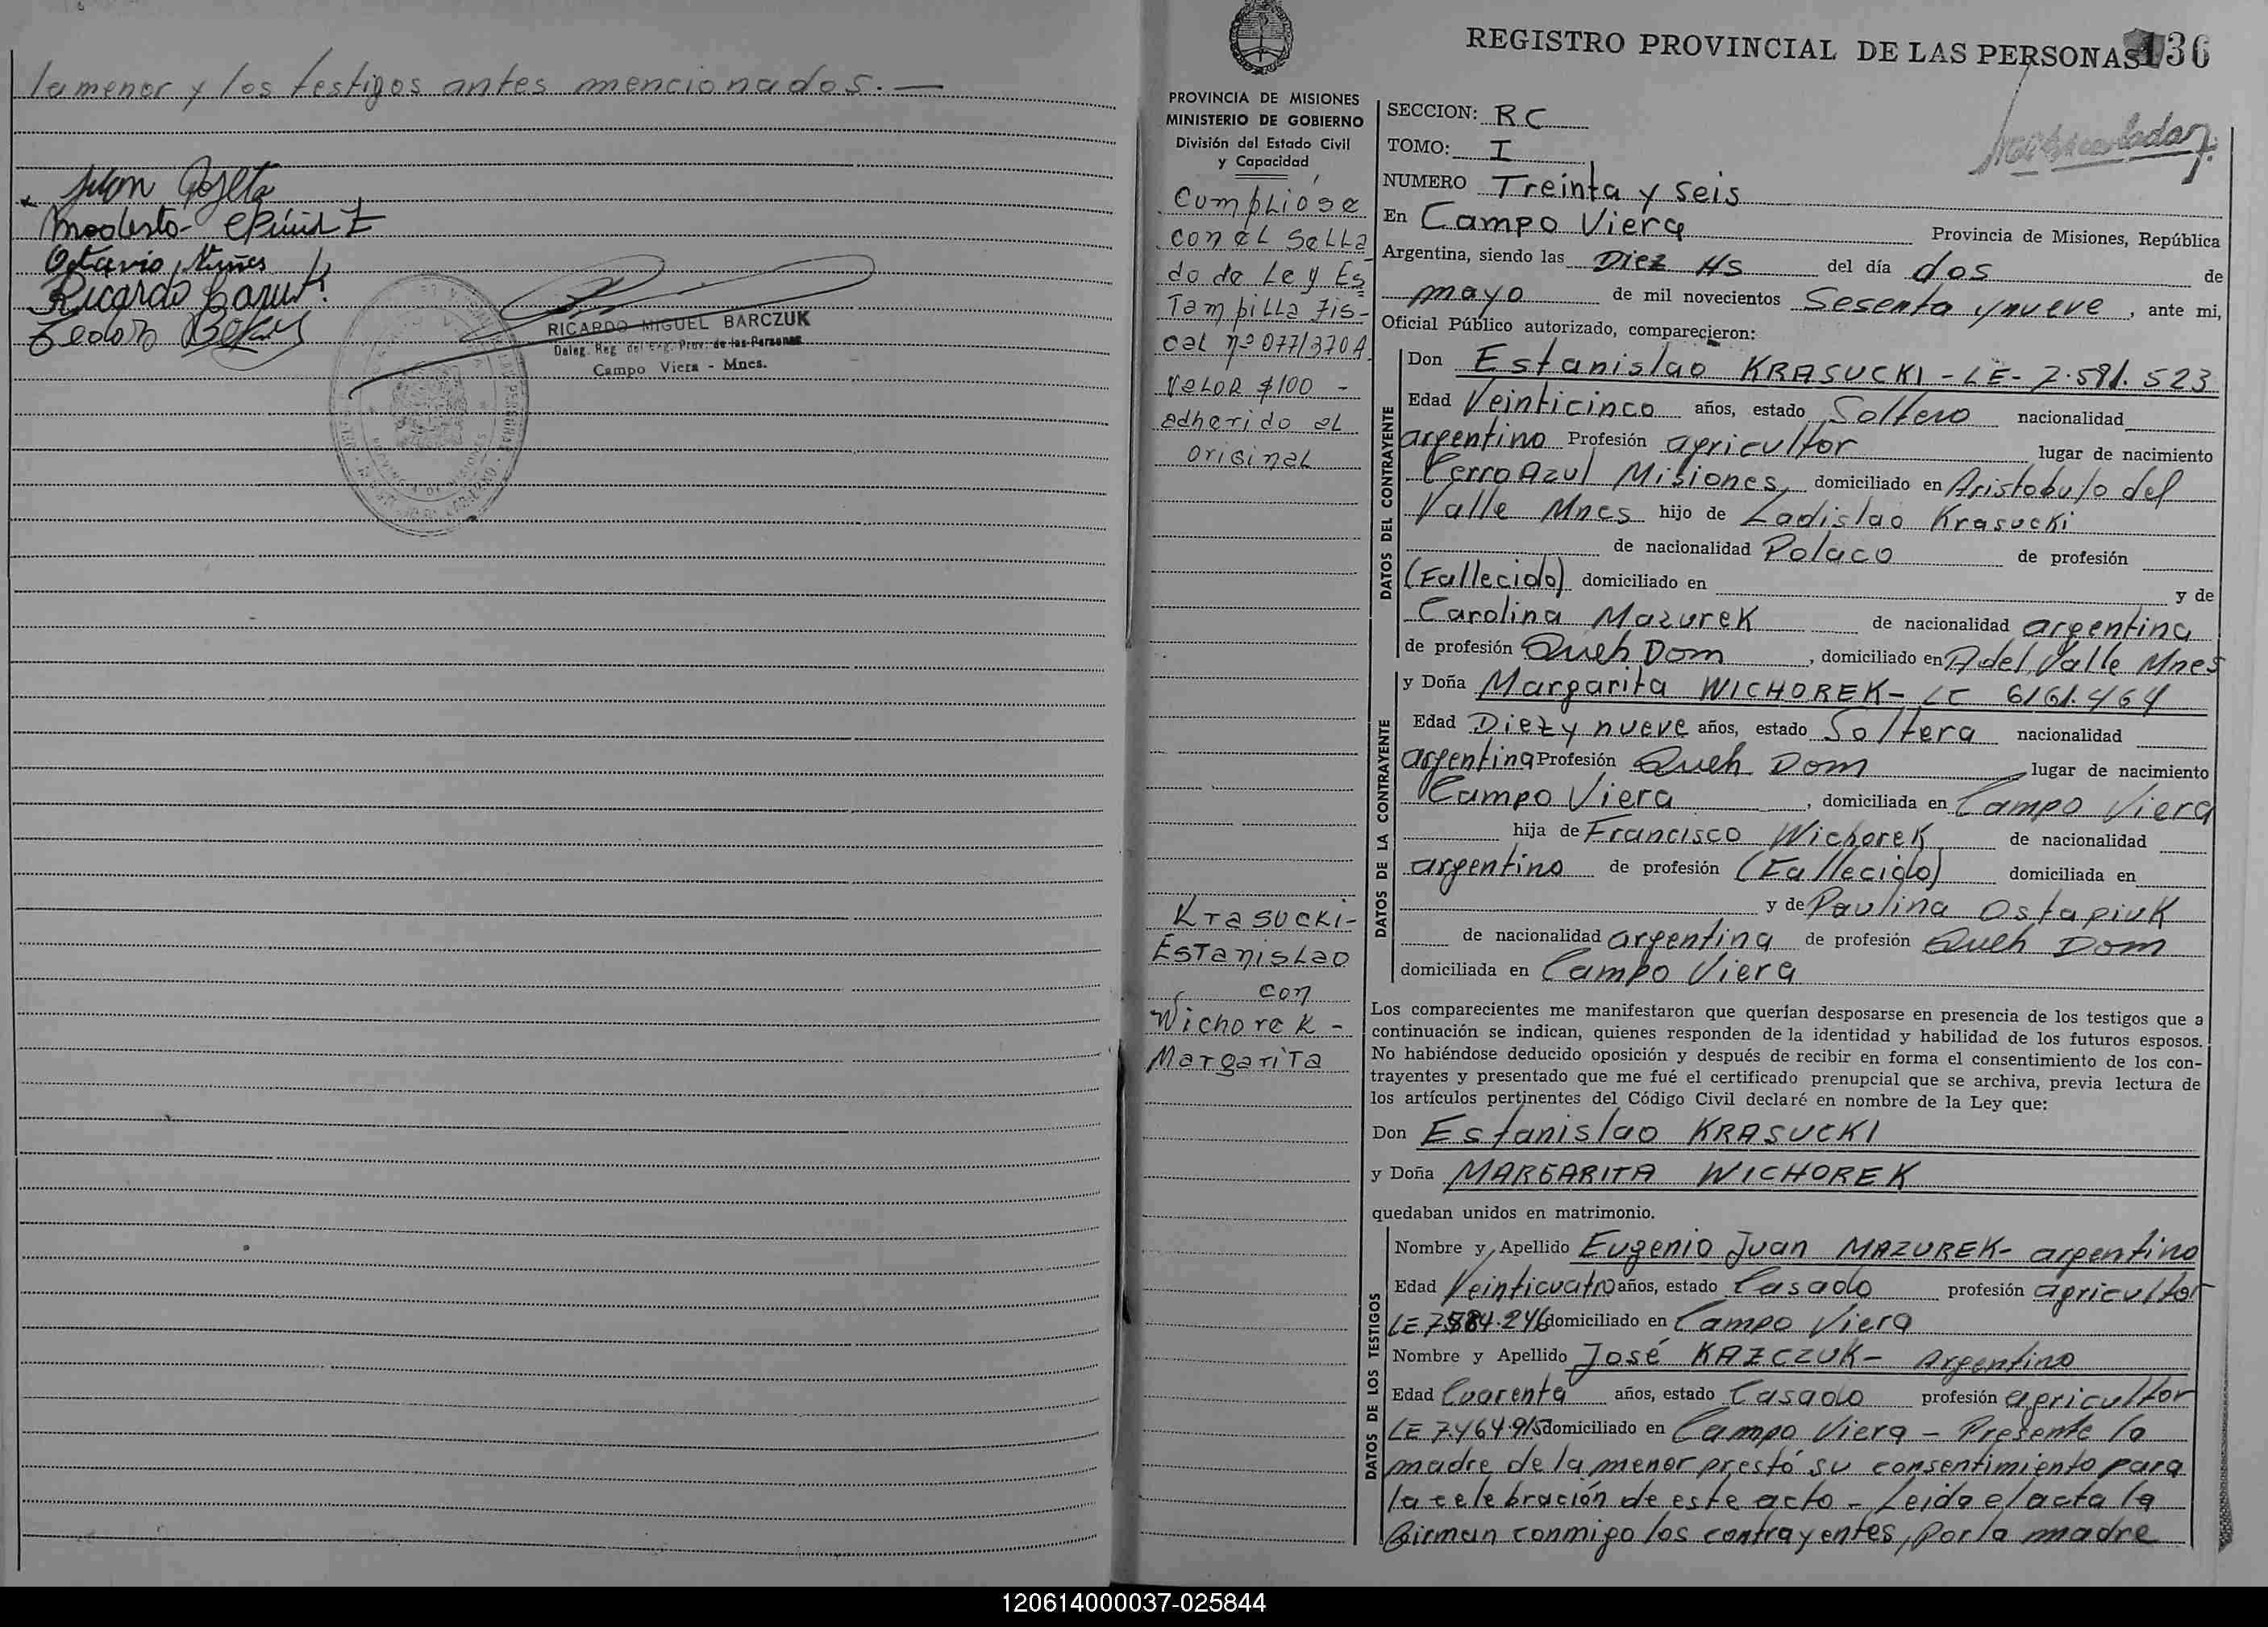 la menor y los testigos antes mencionados. —
Juan
Modesto
Octavio Nuñes
Ricardo
RICARDO MIGUEL BARCZUK
Deleg. Reg. del Prov. de las Personas
Campo Viera - Mnes.
REGISTRO PROVINCIAL DE LAS PERSONAS 136
PROVINCIA DE MISIONES
MINISTERIO DE GOBIERNO
División del Estado Civil
y Capacidad
Cumplióse
con el sella
do de Ley Es
Tampilla Fis-
cal nº 077/370A
Valor $100 -
adherido al
original
Krasucki-
Estanislao
con
Wichorek -
Margarita
SECCION: RC
TOMO: I
NUMERO Treinta y seis
En Campo Viera Provincia de Misiones, República
Argentina, siendo las Diez Hs del día dos de
mayo de mil novecientos Sesenta y nueve, ante mi,
Oficial Público autorizado, comparecieron:
DATOS DEL CONTRAYENTE
Don Estanislao KRASUCKI - LE - 7.581.523
Edad Veinticinco años, estado Soltero nacionalidad
argentino Profesión agricultor lugar de nacimiento
Cerro Azul Misiones, domiciliado en Aristobulo del
Valle Mnes hijo de Ladislao Krasucki
de nacionalidad Polaco de profesión
(Fallecido) domiciliado en y de
Carolina Mazurek de nacionalidad argentina
de profesión Queh Dom, domiciliado en A del Valle Mnes
DATOS DE LA CONTRAYENTE
y Doña Margarita WICHOREK - LC 6161.464
Edad Diez y nueve años, estado Soltera nacionalidad
argentina Profesión Queh Dom lugar de nacimiento
Campo Viera, domiciliada en Campo Viera
hija de Francisco Wichorek de nacionalidad
argentino de profesión (Fallecido) domiciliada en
y de Paulina Ostapiuk
de nacionalidad argentina de profesión Queh Dom
domiciliada en Campo Viera
Los comparecientes me manifestaron que querían desposarse en presencia de los testigos que a
continuación se indican, quienes responden de la identidad y habilidad de los futuros esposos.
No habiéndose deducido oposición y después de recibir en forma el consentimiento de los con-
trayentes y presentado que me fué el certificado prenupcial que se archiva, previa lectura de
los artículos pertinentes del Código Civil declaré en nombre de la Ley que:
Don Estanislao KRASUCKI
y Doña MARGARITA WICHOREK
quedaban unidos en matrimonio.
DATOS DE LOS TESTIGOS
Nombre y Apellido Eugenio Juan MAZUREK - argentino
Edad Veinticuatro años, estado Casado profesión agricultor
LE domiciliado en Campo Viera
Nombre y Apellido José KAZCZUK - Argentino
Edad Cuarenta años, estado Casado profesión agricultor
LE 7.464.915 domiciliado en Campo Viera - Presente la
madre de la menor prestó su consentimiento para
la celebración de este acto - Leida el acta la
firman conmigo los contrayentes, por la madre
120614000037-025844